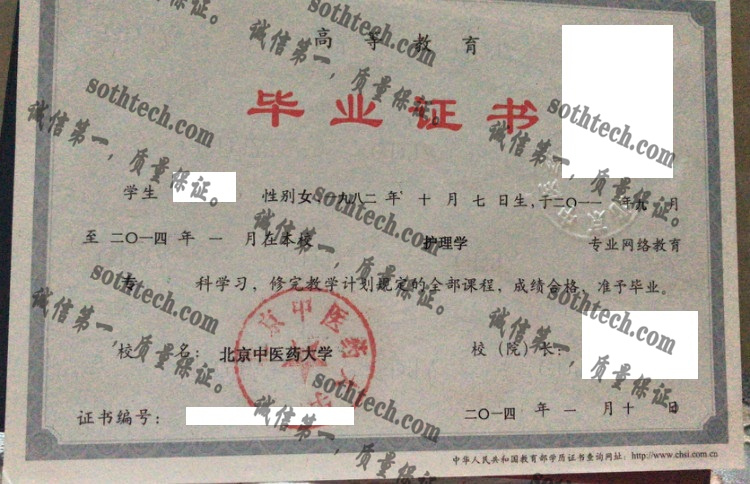 高等教育
毕业证书
学生 性别女,一九八二年十月七日生,于二〇一一年九月
至二〇一四年一月在本校 护理学 专业网络教育
专 科学习,修完教学计划规定的全部课程,成绩合格,准予毕业。
校 名: 北京中医药大学 校(院)长:
证书编号: 二〇一四年一月十日
中华人民共和国教育部学历证书查询网址: http://www.chsi.com.cn
北京中医药大学
sothtech.com
诚信第一,质量保证。
sothtech.com
诚信第一,质量保证。
sothtech.com
诚信第一,质量保证。
sothtech.com
诚信第一,质量保证。
sothtech.com
诚信第一,质量保证。
sothtech.com
诚信第一,质量保证。
sothtech.com
诚信第一,质量保证。
sothtech.com
诚信第一,质量保证。